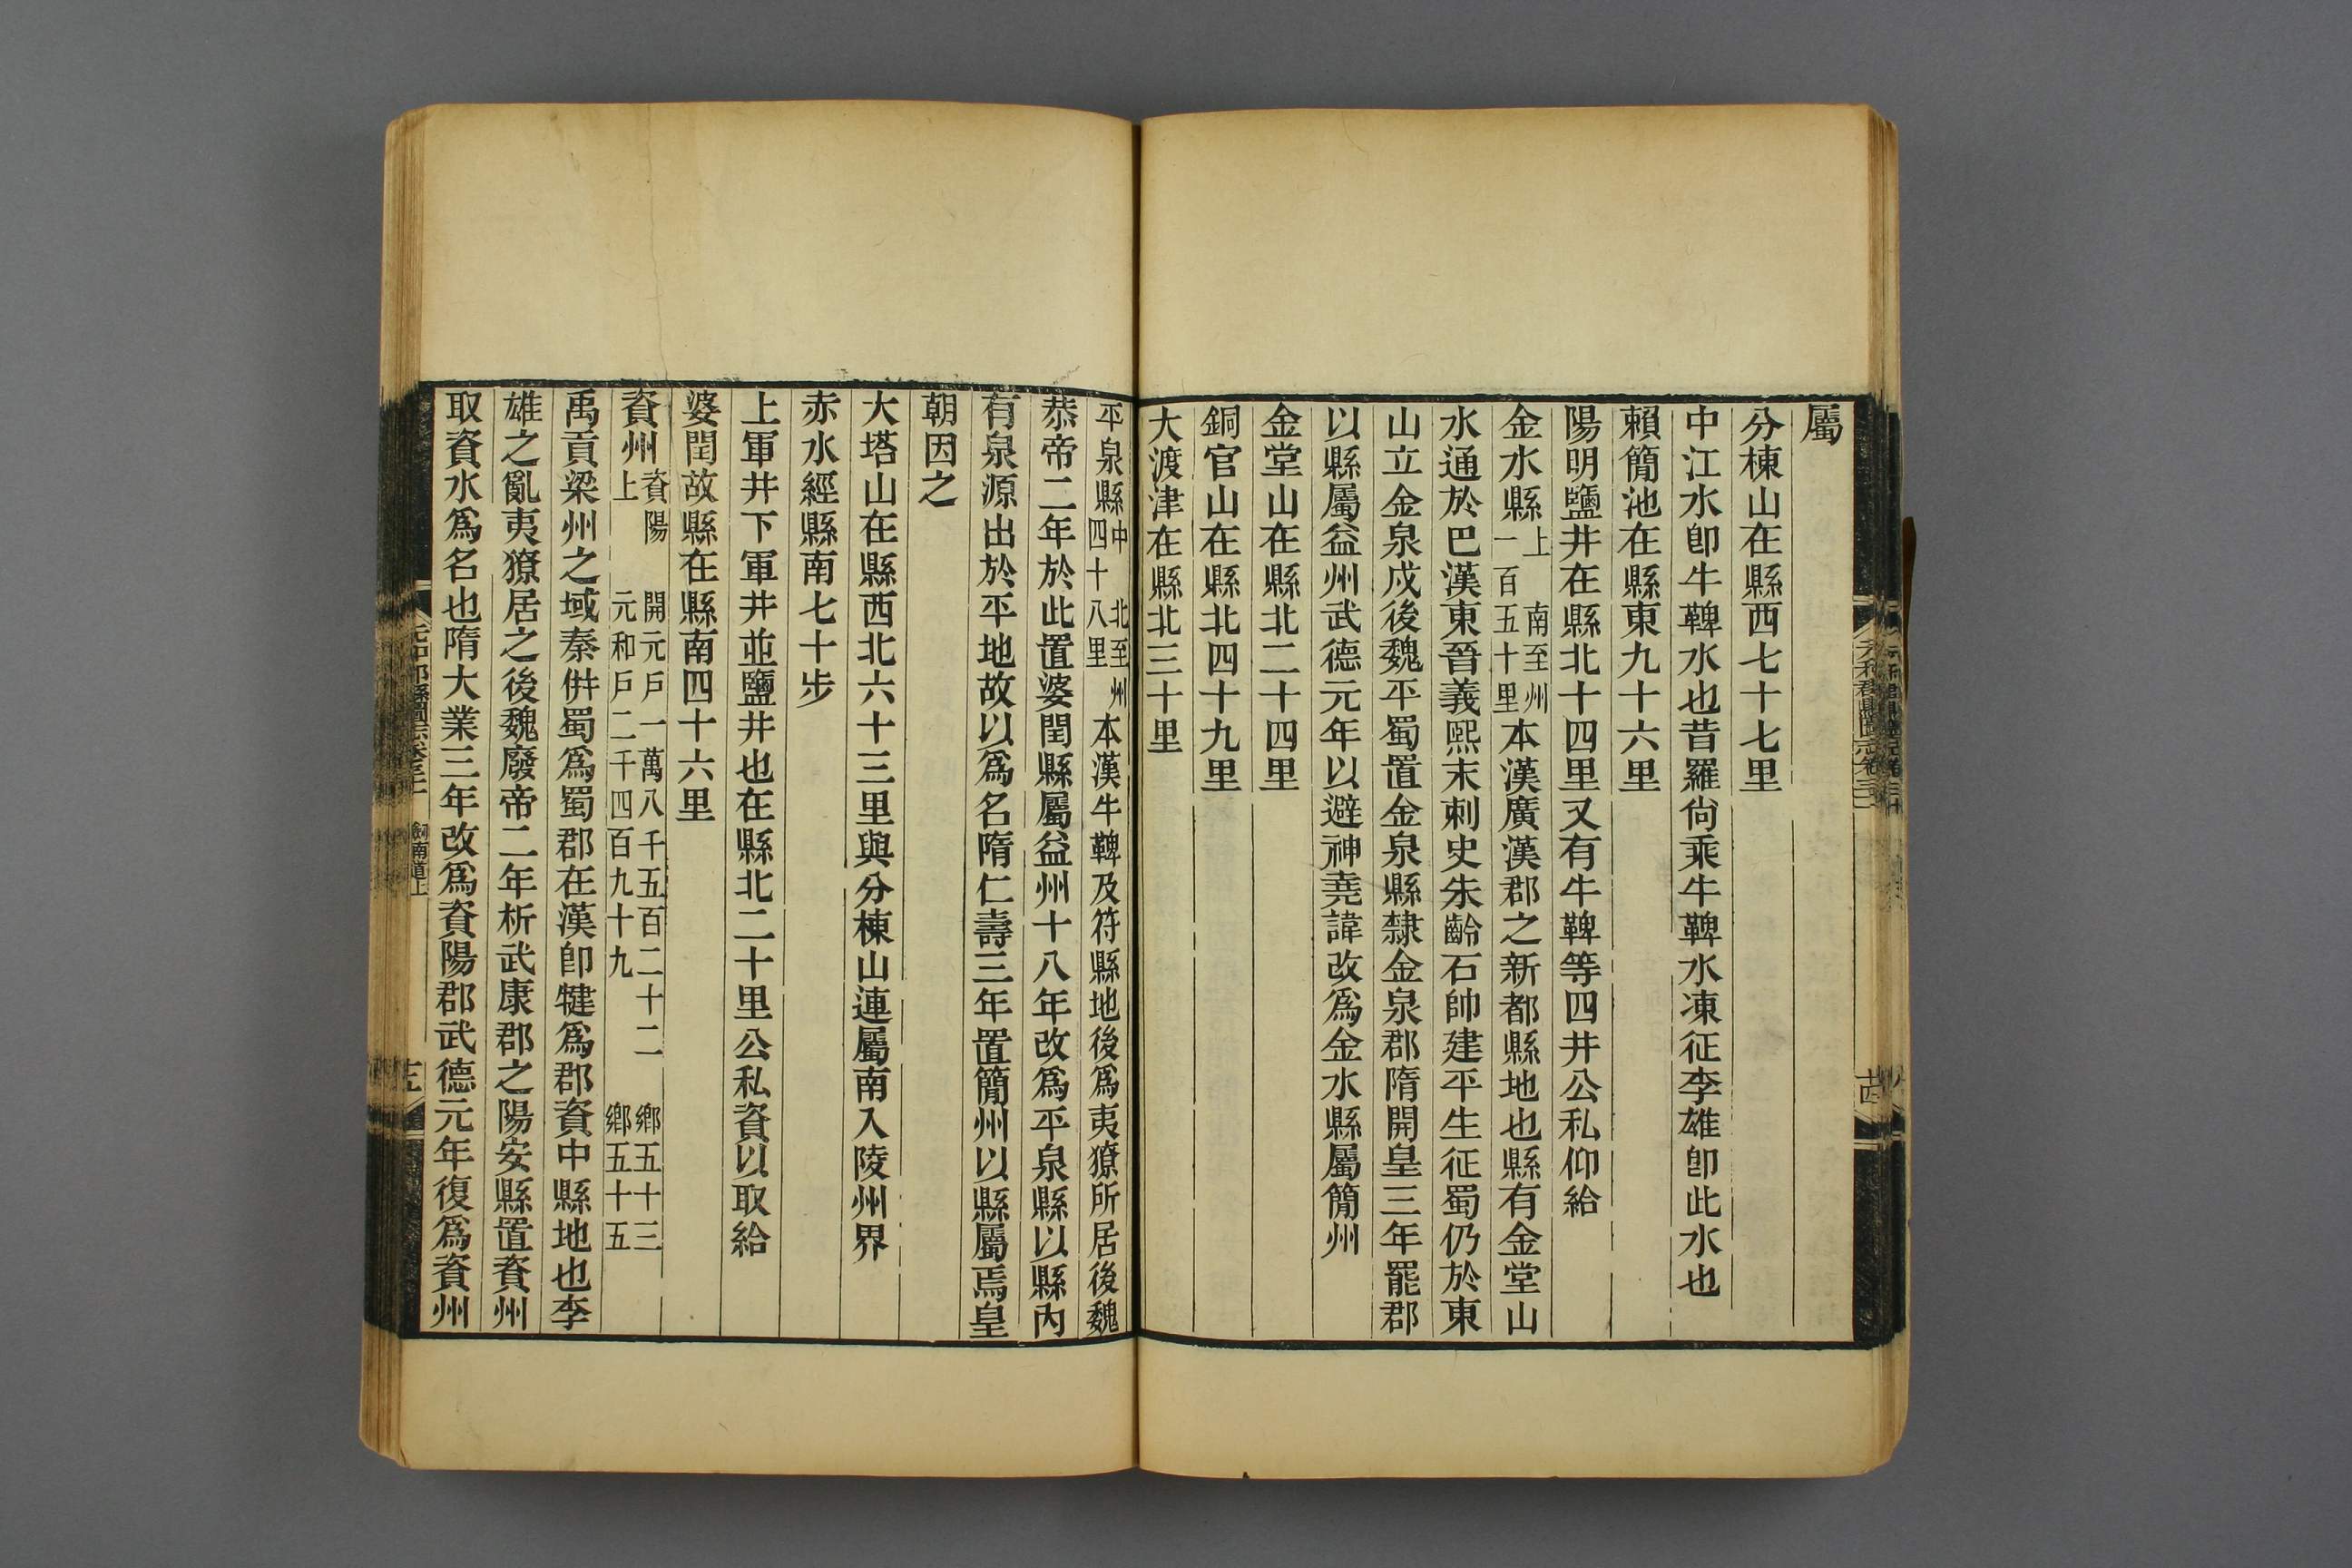 屬
分棟山在縣西七十七里
中江水卽牛鞞水也昔羅尙乘牛鞞水凍征李雄卽此水也
賴簡池在縣東九十六里
陽明鹽井在縣北十四里又有牛鞞等四井公私仰給
金水縣上 南至州一百五十里本漢廣漢郡之新都縣地也縣有金堂山
水通於巴漢東晉義熙末刺史朱齡石帥建平生征蜀仍於東
山立金泉戍後魏平蜀置金泉縣隸金泉郡隋開皇三年罷郡
以縣屬益州武德元年以避神堯諱改爲金水縣屬簡州
金堂山在縣北二十四里
銅官山在縣北四十九里
大渡津在縣北三十里
平泉縣中 北至州四十八里本漢牛鞞及符縣地後爲夷獠所居後魏
恭帝二年於此置婆閏縣屬益州十八年改爲平泉縣以縣內
有泉源出於平地故以爲名隋仁壽三年置簡州以縣屬焉皇
朝因之
大塔山在縣西北六十三里與分棟山連屬南入陵州界
赤水經縣南七十步
上軍井下軍井並鹽井也在縣北二十里公私資以取給
婆閏故縣在縣南四十六里
資州資陽上 開元戶一萬八千五百二十二 鄉五十三 元和戶二千四百九十九 鄉五十五
禹貢梁州之域秦併蜀爲蜀郡在漢卽犍爲郡資中縣地也李
雄之亂夷獠居之後魏廢帝二年析武康郡之陽安縣置資州
取資水爲名也隋大業三年改爲資陽郡武德元年復爲資州